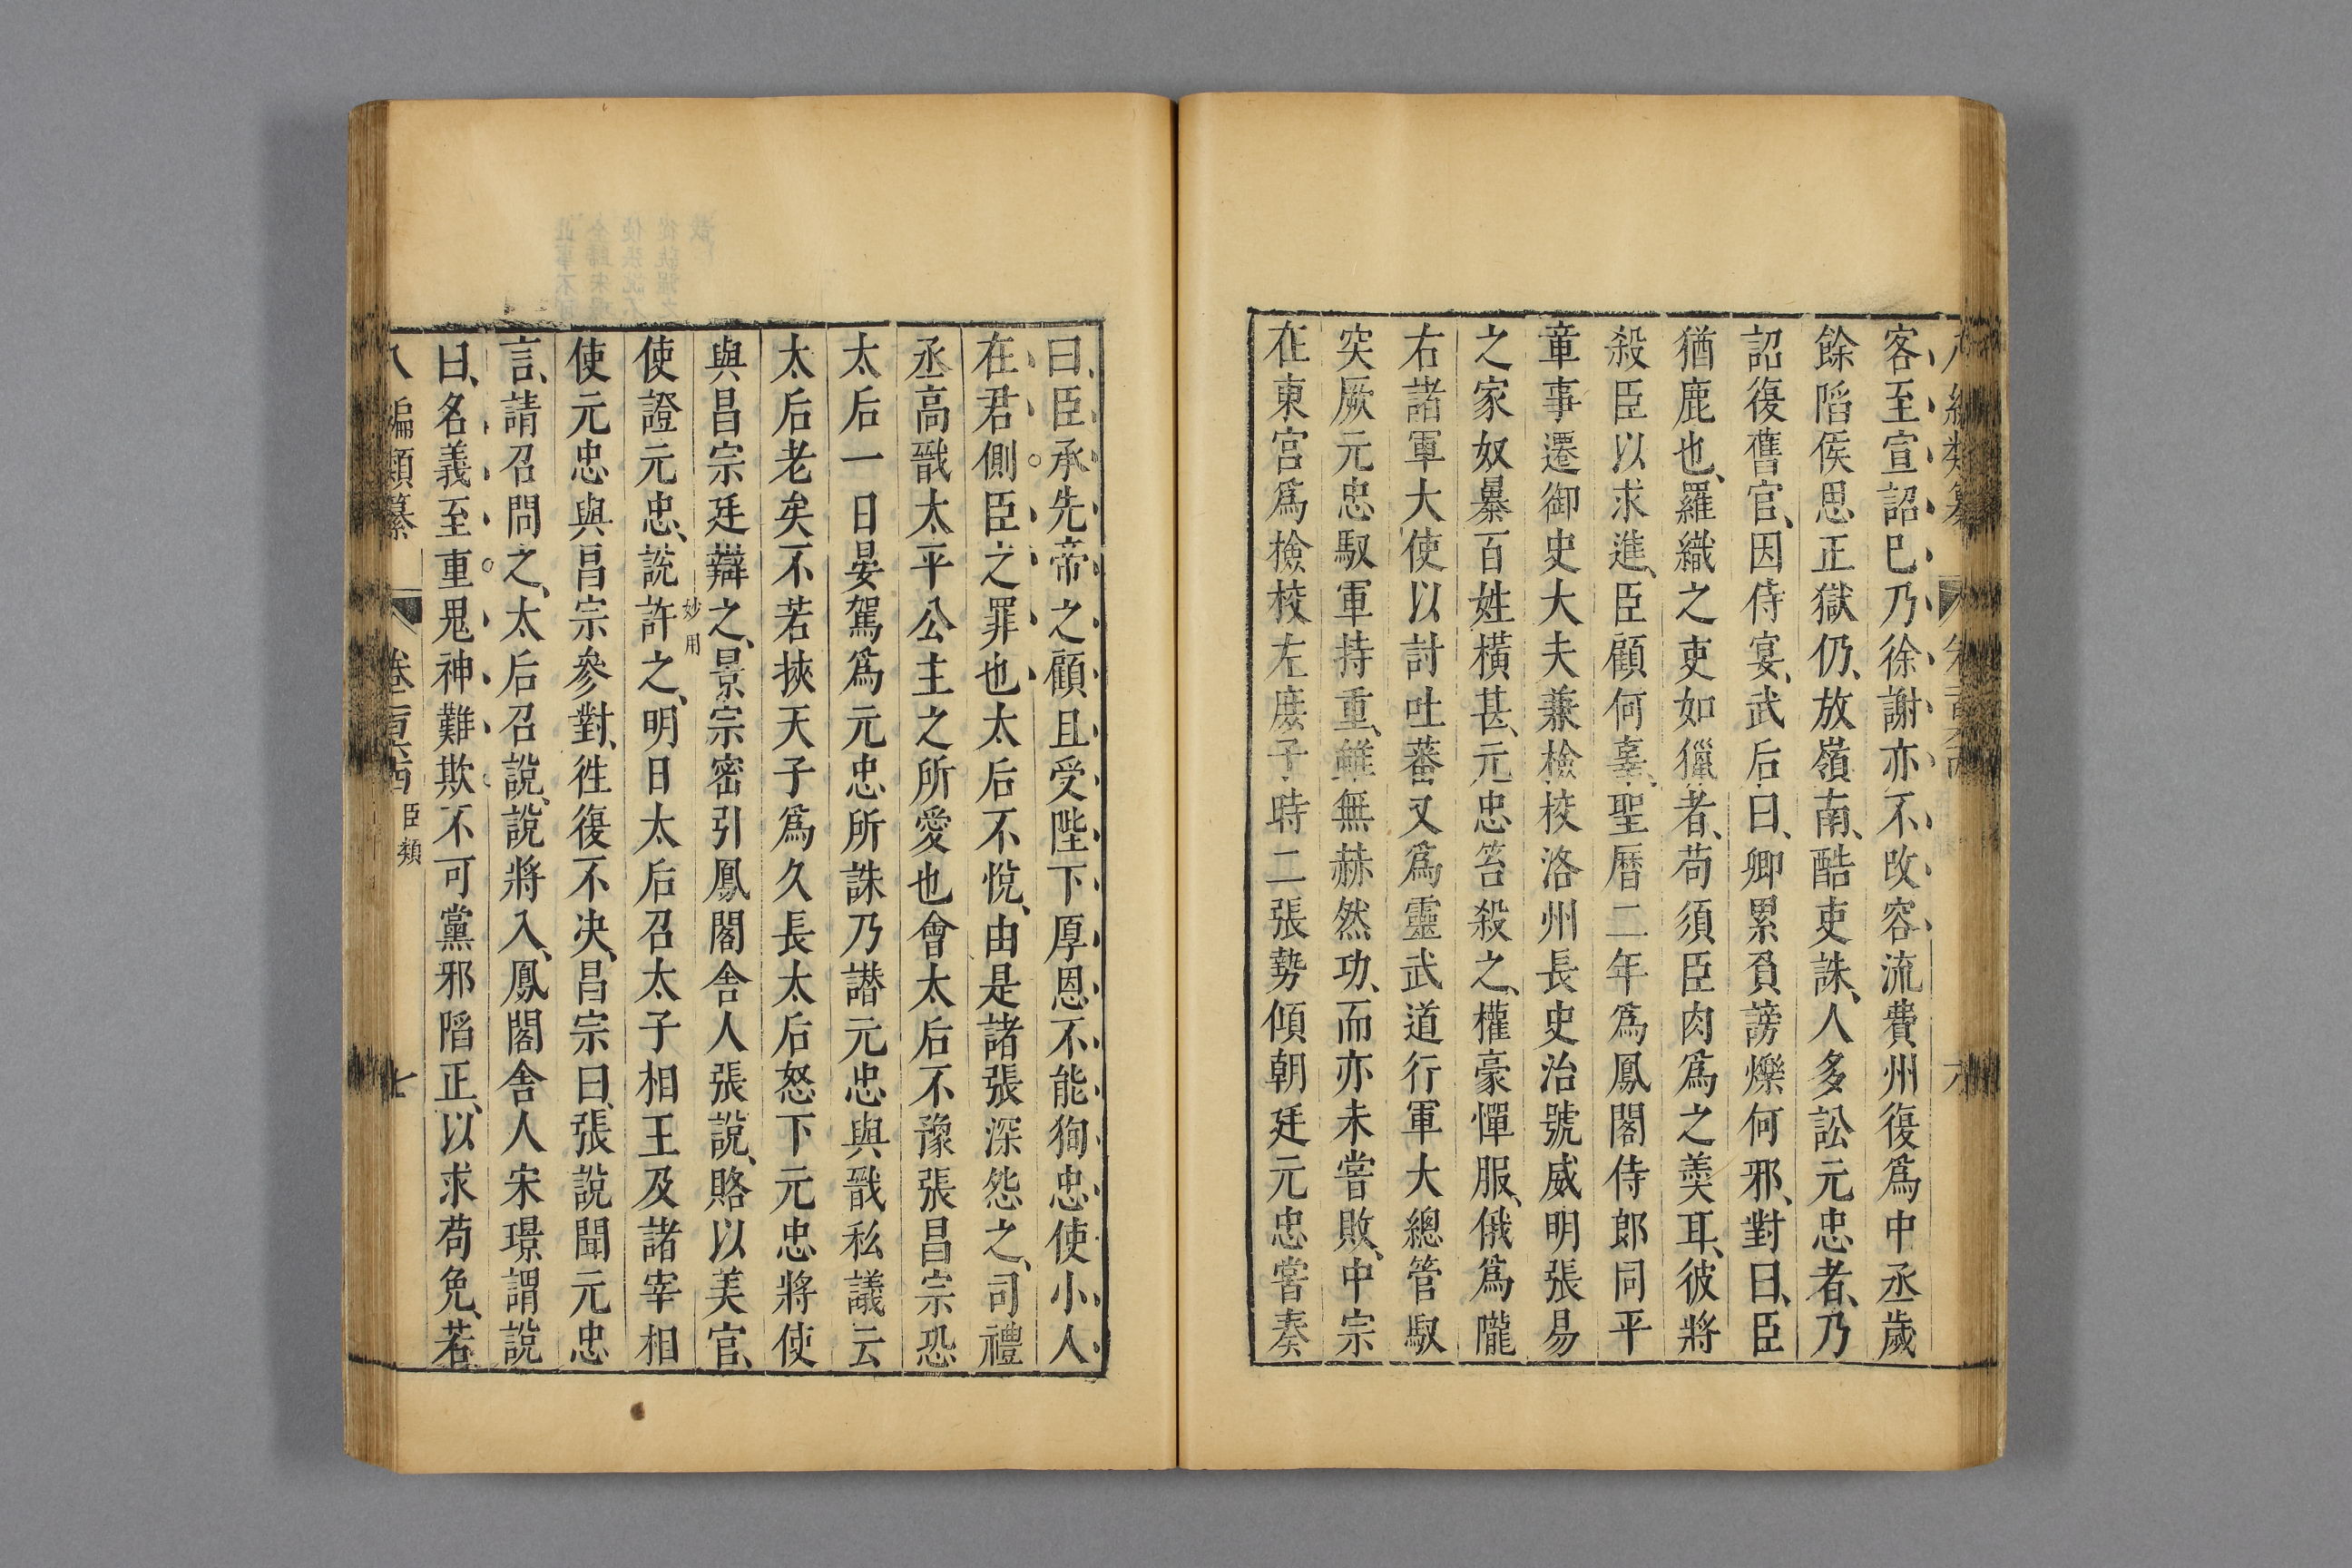 客至宣詔巳乃徐謝亦不改容流費州復爲中丞歲
餘陷侯思正獄仍、放嶺南、酷吏誅、人多訟元忠者、乃
詔復舊官、因侍宴、武后曰、卿累負謗爍何邪、對曰、臣
猶鹿也、羅織之吏如獵者、苟須臣肉爲之羹耳、彼將
殺臣以求進、臣顧何辜、聖曆二年爲鳳閣侍郎同平
章事遷御史大夫兼檢校洛州長史治號威明張易
之家奴暴百姓橫甚、元忠笞殺之、權豪憚服、俄爲隴
右諸軍大使以討吐蕃又爲靈武道行軍大總管馭
突厥元忠馭軍持重、雖無赫然功、而亦未嘗敗、中宗
在東宮爲檢校左庶子時二張勢傾朝廷元忠嘗奏
曰、臣承先帝之顧且受陛下厚恩不能狥忠使小人
在君側臣之罪也太后不悅、由是諸張深怨之、司禮
丞高戩太平公主之所愛也會太后不豫張昌宗恐
太后一日晏駕爲元忠所誅乃譖元忠與戩私議云
太后老矣不若挾天子爲久長太后怒下元忠將使
與昌宗廷辯之、景宗密引鳳閣舍人張說、賂以美官、
妙用
使證元忠、說許之、明日太后召太子相王及諸宰相
使元忠與昌宗參對、徃復不决、昌宗曰、張說聞元忠
言、請召問之、太后召說、說將入、鳳閣舍人宋璟謂說
曰、名義至重鬼神難欺不可黨邪陷正、以求苟免、若
八編類纂 卷二百六十四 臣類 七